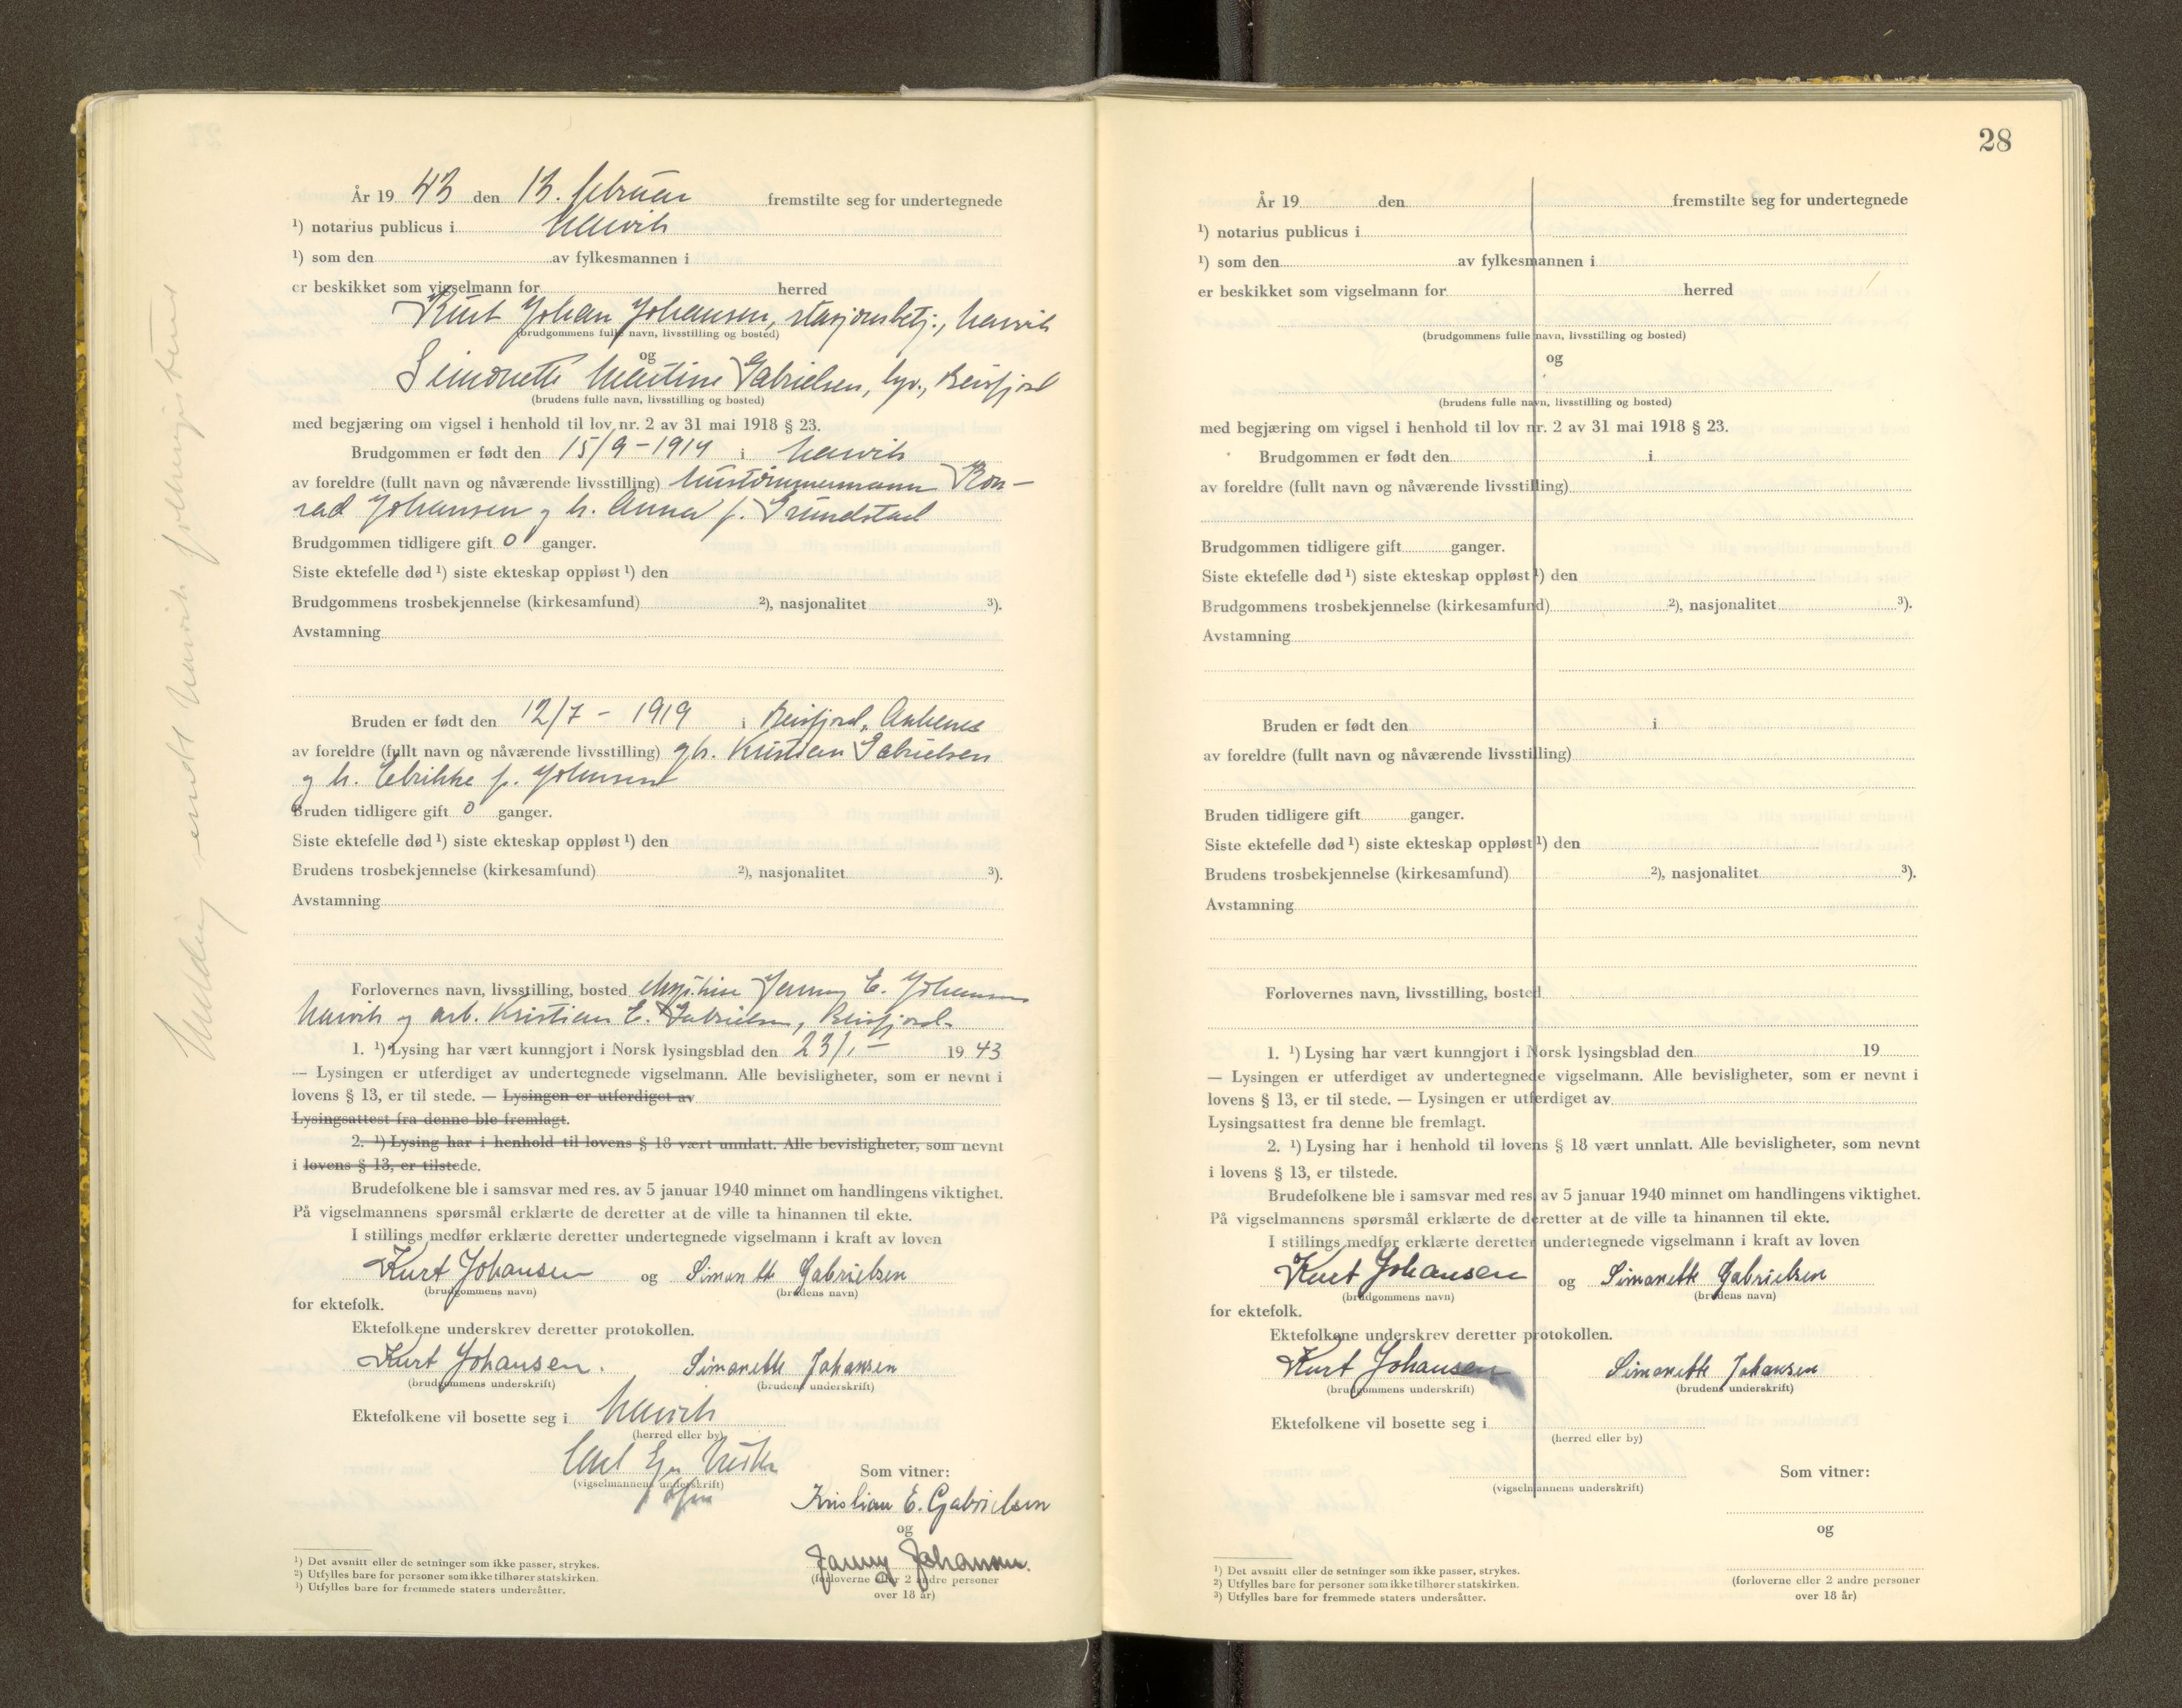 År 19 43 den 13. februar fremstilte seg for undertegnede
¹) notarius publicus i Narvik
¹) som den av fylkesmannen i
er beskikket som vigselmann for herred
Kurt Johan Johansen, stasjonsbetj., Narvik
(brudgommens fulle navn, livsstilling og bosted)
og
Simonette Martine Gabrielsen, hp., Beisfjord
(brudens fulle navn, livsstilling og bosted)
med begjæring om vigsel i henhold til lov nr. 2 av 31 mai 1918 § 23.
Brudgommen er født den 15/9 - 1914 i Narvik
av foreldre (fullt navn og nåværende livsstilling) hustømmermann Kon-
rad Johansen og h. Anna f. Grundstad
Brudgommen tidligere gift 0 ganger.
Siste ektefelle død ¹) siste ekteskap oppløst ¹) den
Brudgommens trosbekjennelse (kirkesamfund) ²), nasjonalitet ³).
Avstamning
Bruden er født den 12/7 - 1919 i Beisfjord, Ankenes
av foreldre (fullt navn og nåværende livsstilling) gbr. Kristian Gabrielsen
og h. Elrikke f. Johansen
Bruden tidligere gift 0 ganger.
Siste ektefelle død ¹) siste ekteskap oppløst ¹) den
Brudens trosbekjennelse (kirkesamfund) ²), nasjonalitet ³).
Avstamning
Forlovernes navn, livsstilling, bosted Jenny E. Johansen
Narvik og arb. Kristian E. Gabrielsen, Beisfjord.
1. ¹) Lysing har vært kunngjort i Norsk lysingsblad den 23/1 19 43
— Lysingen er utferdiget av undertegnede vigselmann. Alle bevisligheter, som er nevnt i
lovens § 13, er til stede. — Lysingen er utferdiget av
Lysingsattest fra denne ble fremlagt.
2. ¹) Lysing har i henhold til lovens § 18 vært unnlatt. Alle bevisligheter, som nevnt
i lovens § 13, er tilstede.
Brudefolkene ble i samsvar med res. av 5 januar 1940 minnet om handlingens viktighet.
På vigselmannens spørsmål erklærte de deretter at de ville ta hinannen til ekte.
I stillings medfør erklærte deretter undertegnede vigselmann i kraft av loven
Kurt Johansen og Simonette Gabrielsen
(brudgommens navn) (brudens navn)
for ektefolk.
Ektefolkene underskrev deretter protokollen.
Kurt Johansen. Simonette Johansen
(brudgommens underskrift) (brudens underskrift)
Ektefolkene vil bosette seg i Narvik
(herred eller by)
(vigselmannens underskrift)
Som vitner:
Kristian E. Gabrielsen
og
Jenny Johansen.
(forloverne eller 2 andre personer
over 18 år)
¹) Det avsnitt eller de setninger som ikke passer, strykes.
²) Utfylles bare for personer som ikke tilhører statskirken.
³) Utfylles bare for fremmede staters undersåtter.
Melding sendt Narvik folkeregister
28
År 19 den fremstilte seg for undertegnede
¹) notarius publicus i
¹) som den av fylkesmannen i
er beskikket som vigselmann for herred
(brudgommens fulle navn, livsstilling og bosted)
og
(brudens fulle navn, livsstilling og bosted)
med begjæring om vigsel i henhold til lov nr. 2 av 31 mai 1918 § 23.
Brudgommen er født den i
av foreldre (fullt navn og nåværende livsstilling)
Brudgommen tidligere gift ganger.
Siste ektefelle død ¹) siste ekteskap oppløst ¹) den
Brudgommens trosbekjennelse (kirkesamfund) ²), nasjonalitet ³).
Avstamning
Bruden er født den i
av foreldre (fullt navn og nåværende livsstilling)
Bruden tidligere gift ganger.
Siste ektefelle død ¹) siste ekteskap oppløst ¹) den
Brudens trosbekjennelse (kirkesamfund) ²), nasjonalitet ³).
Avstamning
Forlovernes navn, livsstilling, bosted
1. ¹) Lysing har vært kunngjort i Norsk lysingsblad den 19
— Lysingen er utferdiget av undertegnede vigselmann. Alle bevisligheter, som er nevnt i
lovens § 13, er til stede. — Lysingen er utferdiget av
Lysingsattest fra denne ble fremlagt.
2. ¹) Lysing har i henhold til lovens § 18 vært unnlatt. Alle bevisligheter, som nevnt
i lovens § 13, er tilstede.
Brudefolkene ble i samsvar med res. av 5 januar 1940 minnet om handlingens viktighet.
På vigselmannens spørsmål erklærte de deretter at de ville ta hinannen til ekte.
I stillings medfør erklærte deretter undertegnede vigselmann i kraft av loven
Kurt Johansen og Simonette Gabrielsen
(brudgommens navn) (brudens navn)
for ektefolk.
Ektefolkene underskrev deretter protokollen.
Kurt Johansen Simonette Johansen
(brudgommens underskrift) (brudens underskrift)
Ektefolkene vil bosette seg i
(herred eller by)
(vigselmannens underskrift)
Som vitner:
og
(forloverne eller 2 andre personer
over 18 år)
¹) Det avsnitt eller de setninger som ikke passer, strykes.
²) Utfylles bare for personer som ikke tilhører statskirken.
³) Utfylles bare for fremmede staters undersåtter.